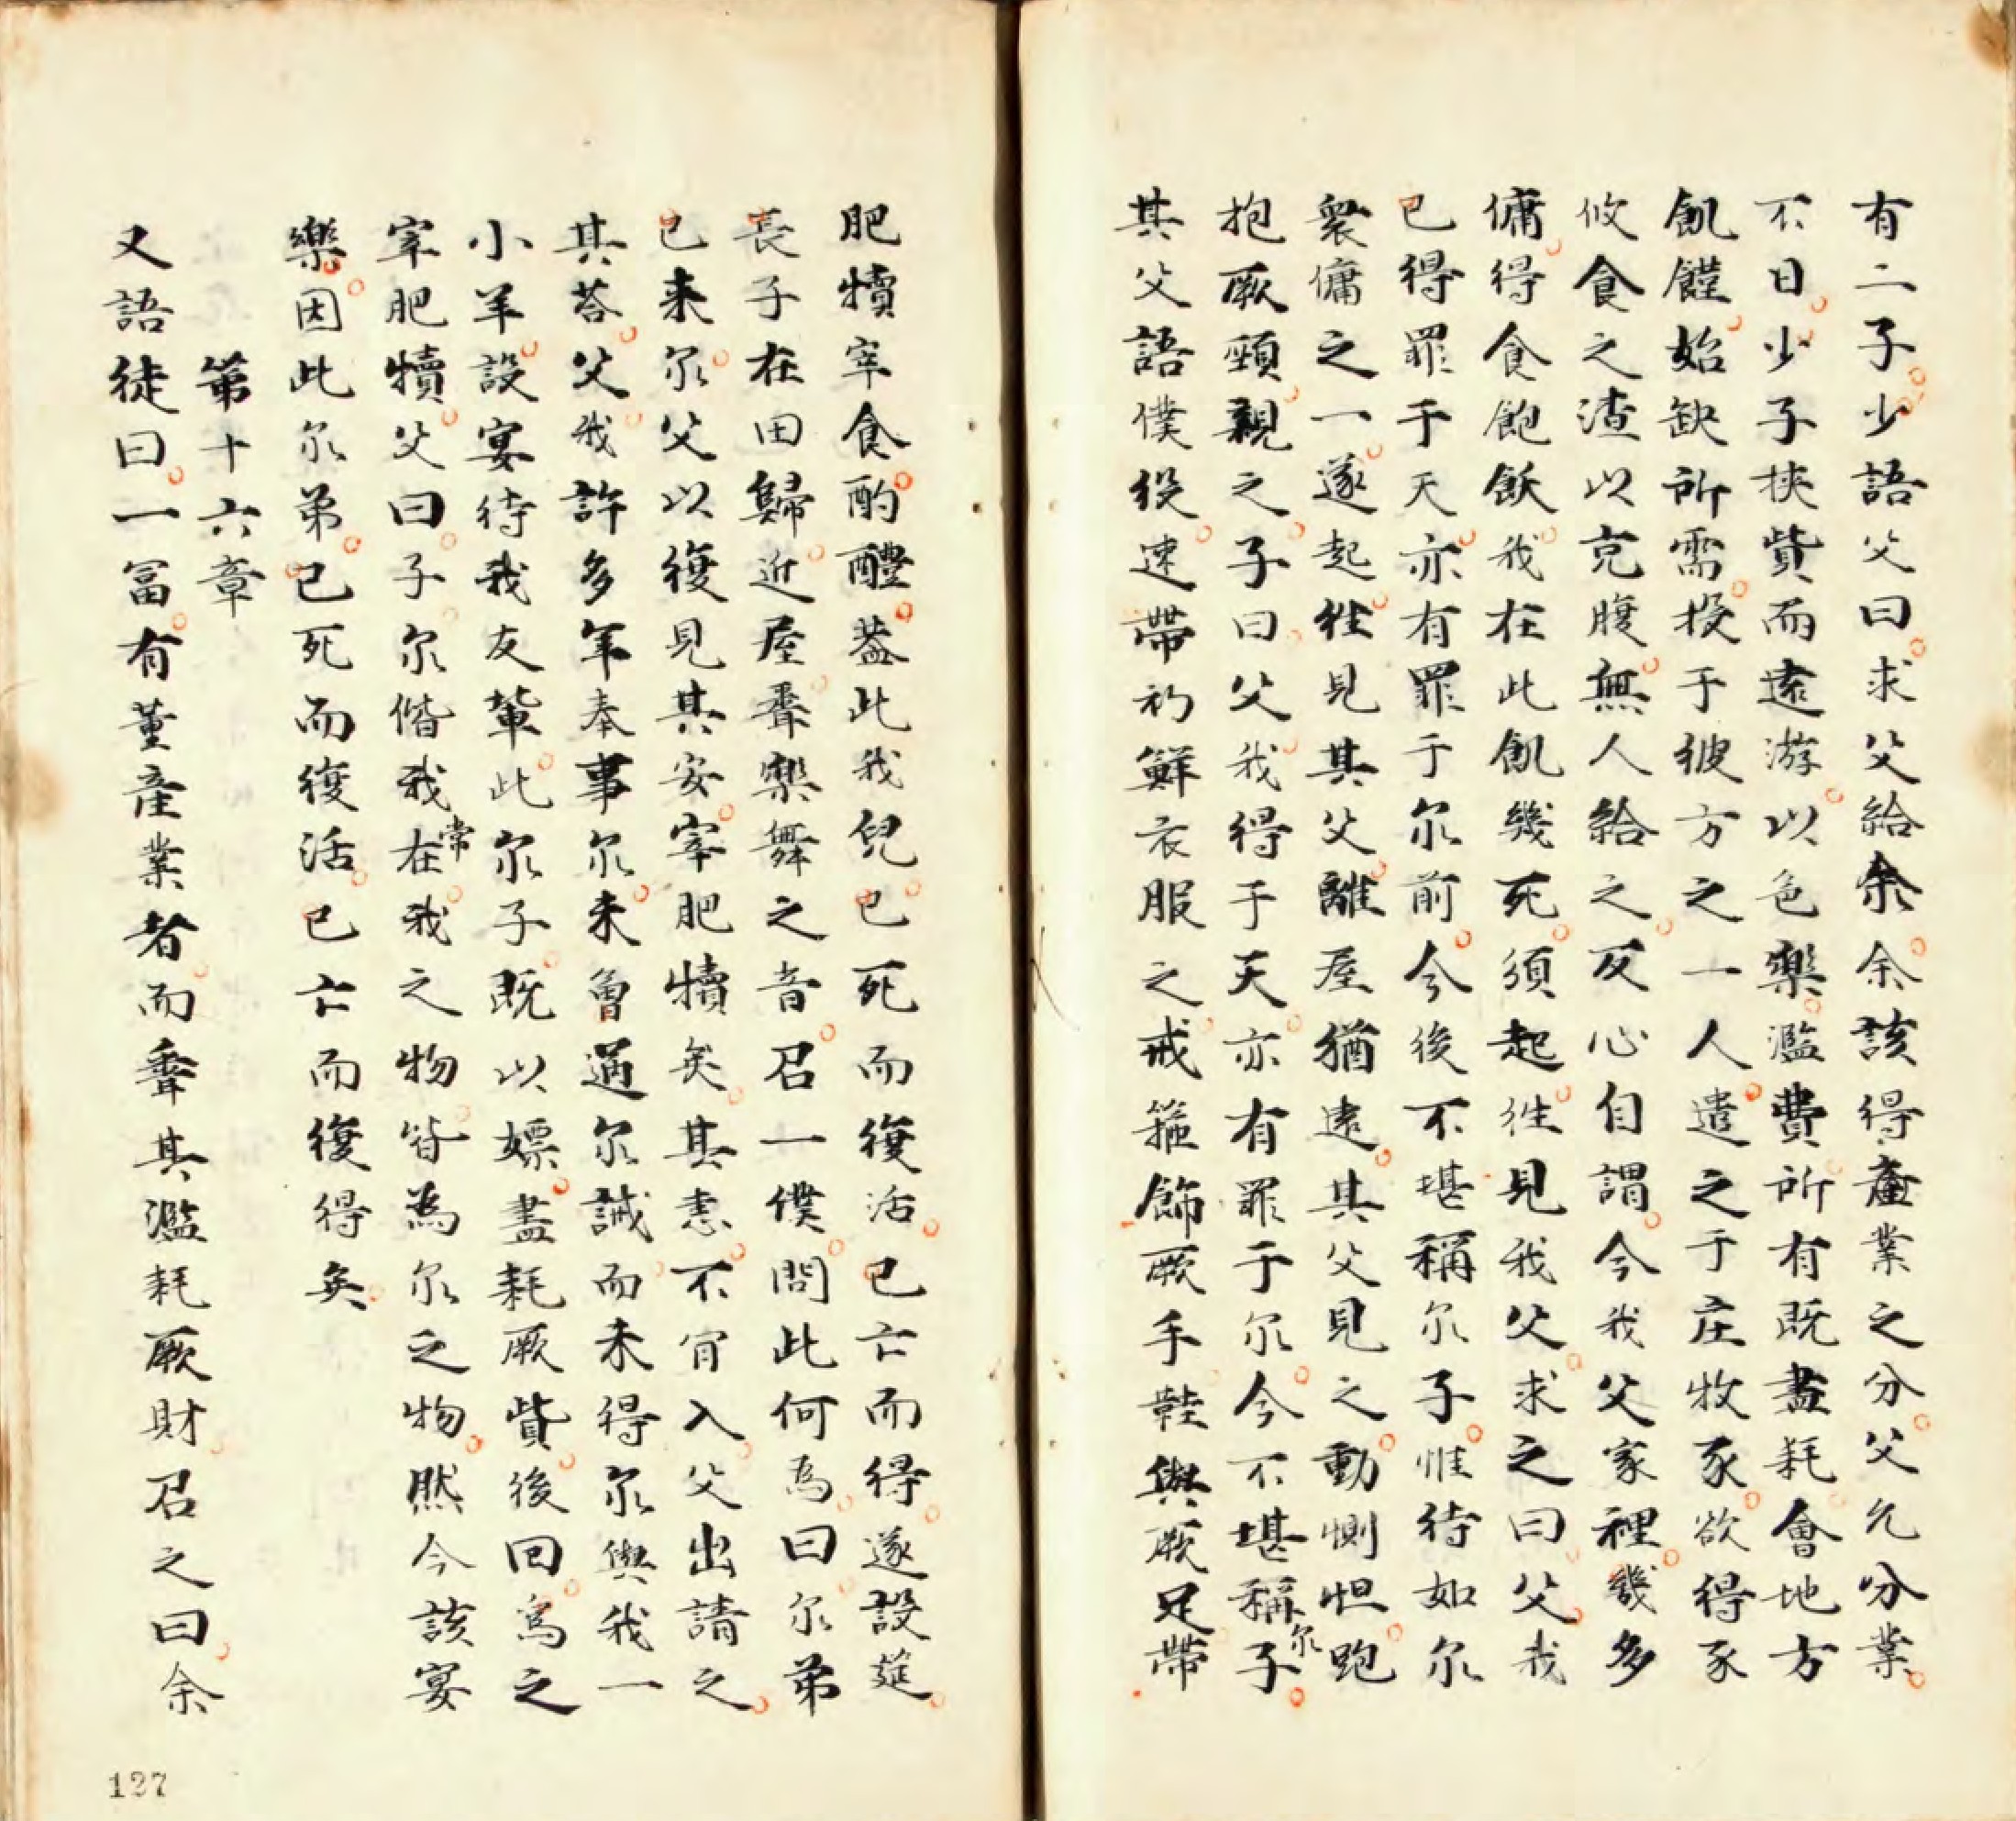 有二子少語父曰求父給余余該得產業之分父允分業
不日少子挾貲而遠游以色樂濫費所有既盡耗會地方
飢饉始缺所需投于彼方之一人遣之于庄牧豕欲得豕
攸食之渣以克腹無人給之反心自謂今我父家裡幾多
傭得食飽飫我在此飢幾死須起往見我父求之曰父我
已得罪于天亦有罪于尔前今後不堪稱尔子惟待如尔
眾傭之一遂起往見其父離屋猶遠其父見之動惻怛跑
抱厥頸親之子曰父我得于天亦有罪于尔今不堪稱尔子
其父語僕役速帶初鮮衣服之戒箍飾厥手鞋與厥足帶
肥犢宰食酌醴葢此我兒已死而復活已亡而得遂設筵
長子在田歸近屋聽樂舞之音召一僕問此何為曰尔弟
已来尔父以復見其安宰肥犢矣其恚不肯入父出請之
其荅父我許多年奉事尔未曾過尔誡而未得尔與我一
小羊設宴待我友輩此尔子既以嫖盡耗厥貲後回為之
宰肥犢父曰子尔偕我常在我之物皆為尔之物然今該宴
樂因此尔弟已死而復活已亡而復得矣
第十六章
又語徒曰一富有董產業者而聽其濫耗厥財召之曰余
127